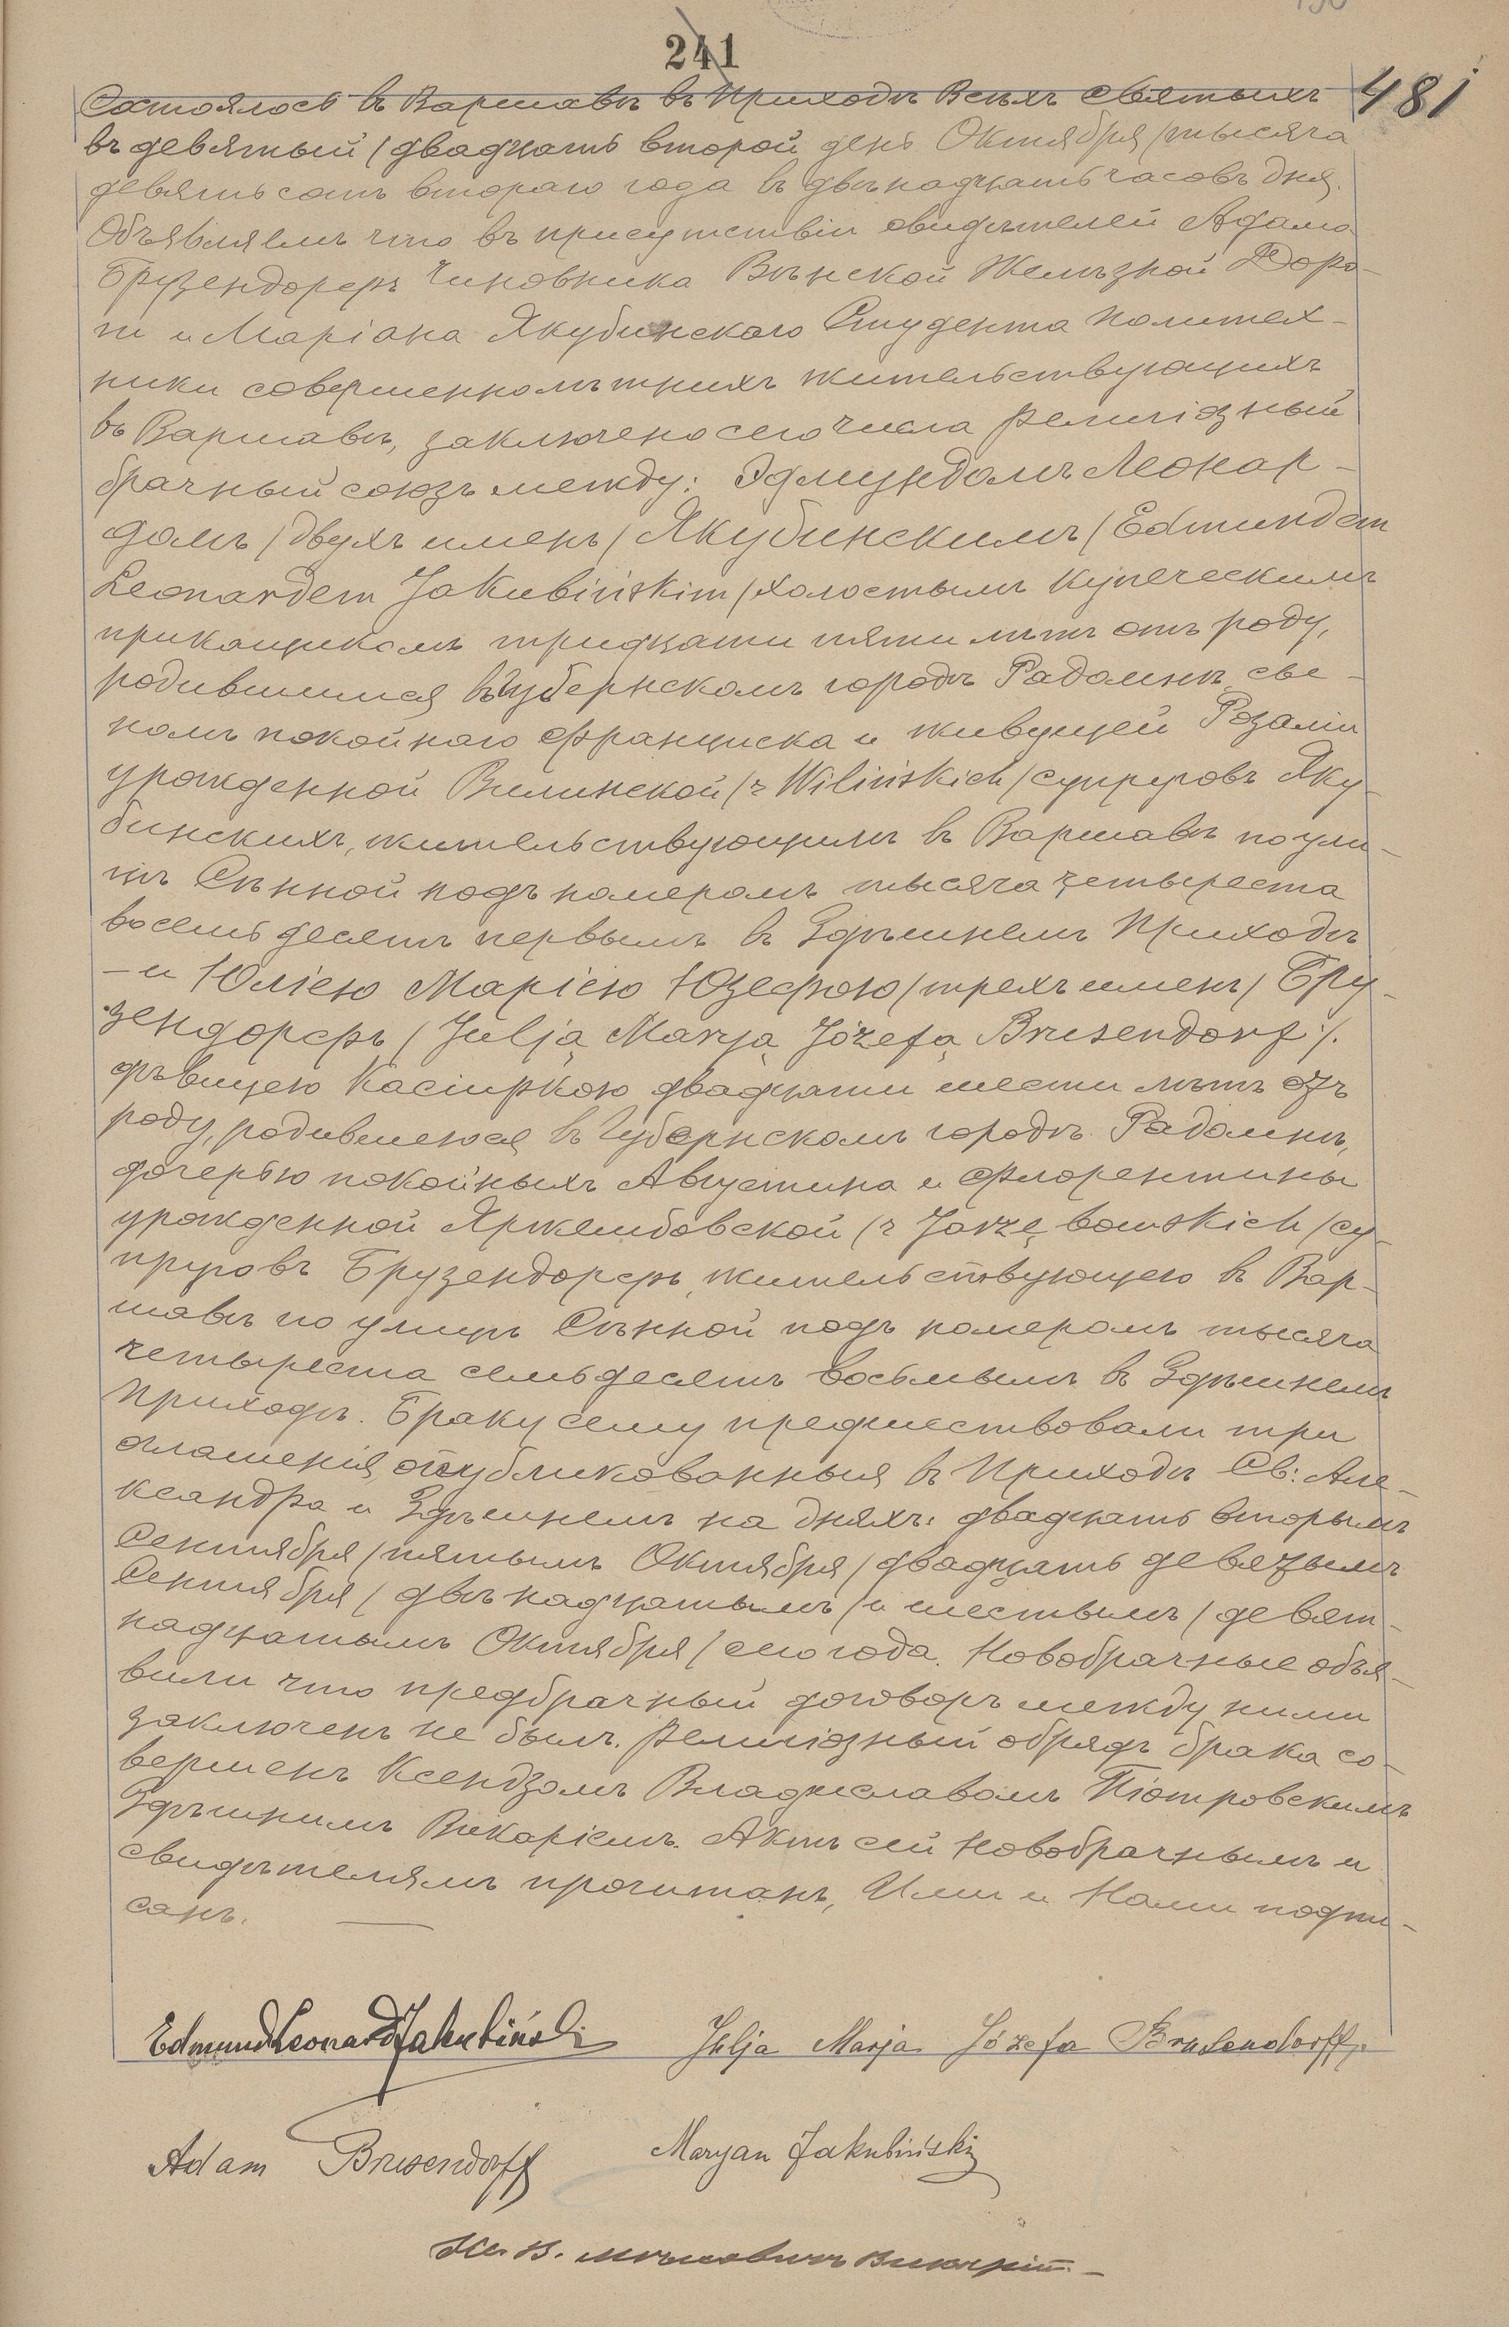 241
481
Состоялось въ Варшавѣ въ Приходѣ Всѣхъ Святыхъ
въ девятый / двадцать второй день Октября / тысяча
девятьсотъ втораго года въ двѣнадцать часовъ дня.
Объявляемъ что въ присутствіи свидѣтелей Адама
Брузендорфъ Чиновника Вѣнской Желѣзной Доро-
ги и Маріана Якубинскаго Студента Политех-
ники совершеннолѣтнихъ жительствующихъ
въ Варшавѣ, заключено сего числа религіозный
брачный союзъ между: Эдмундомъ Леонар-
домъ / двухъ именъ / Якубинскимъ / Edmundem
Leonardem Jakubińskim / холостымъ купеческимъ
прикащикомъ тридцати пяти лѣтъ отъ роду,
родившимся въ Губернскомъ городѣ Радомѣ, сы-
номъ покойнаго Франциска и живущей Розаліи
урожденной Вилинской / z Wilińskich / супруговъ Яку-
бинскихъ, жительствующимъ въ Варшавѣ по ули-
цѣ Сѣнной подъ номеромъ тысяча четыреста
восемьдесятъ первымъ въ Здѣшнемъ Приходѣ
– и Юліею Маріею Юзефою / трехъ именъ / Бру-
зендорфъ / Julją Marją Józefą Brusendorf /.
дѣвицею Кассиркою двадцати шести лѣтъ отъ
роду, родившеюся въ Губернскомъ городѣ Радомѣ,
дочерью покойныхъ Августина и Флорентины
урожденной Яржембовской / z Jarzębowskich / су-
пруговъ Брузендорфъ, жительствующею въ Вар-
шавѣ по улицѣ Сѣнной подъ номеромъ тысяча
четыреста семьдесятъ восьмымъ въ Здѣшнемъ
Приходѣ. Браку сему предшествовали три
оглашенія, опубликованныя въ Приходѣ Св: Але-
ксандра и Здѣшнемъ на дняхъ: двадцать вторымъ
Сентября / пятымъ Октября / двадцать девятымъ
Сентября / двѣнадцатымъ / и шестымъ / девят-
надцатымъ Октября / сего года. Новобрачные объя-
вили что предбрачный договоръ между ними
заключенъ не былъ. Религіозный обрядъ брака со-
вершенъ Ксендзомъ Владиславомъ Піотровскимъ
Здѣшнимъ Викаріемъ. Актъ сей Новобрачнымъ и
свидѣтелямъ прочитанъ, Ими и Нами подпи-
санъ.
Edmund Leonard Jakubiński
Julja Marja Józefa Brusendorff.
Adam Brusendorff
Maryan Jakubiński
Кс. В. Викарій